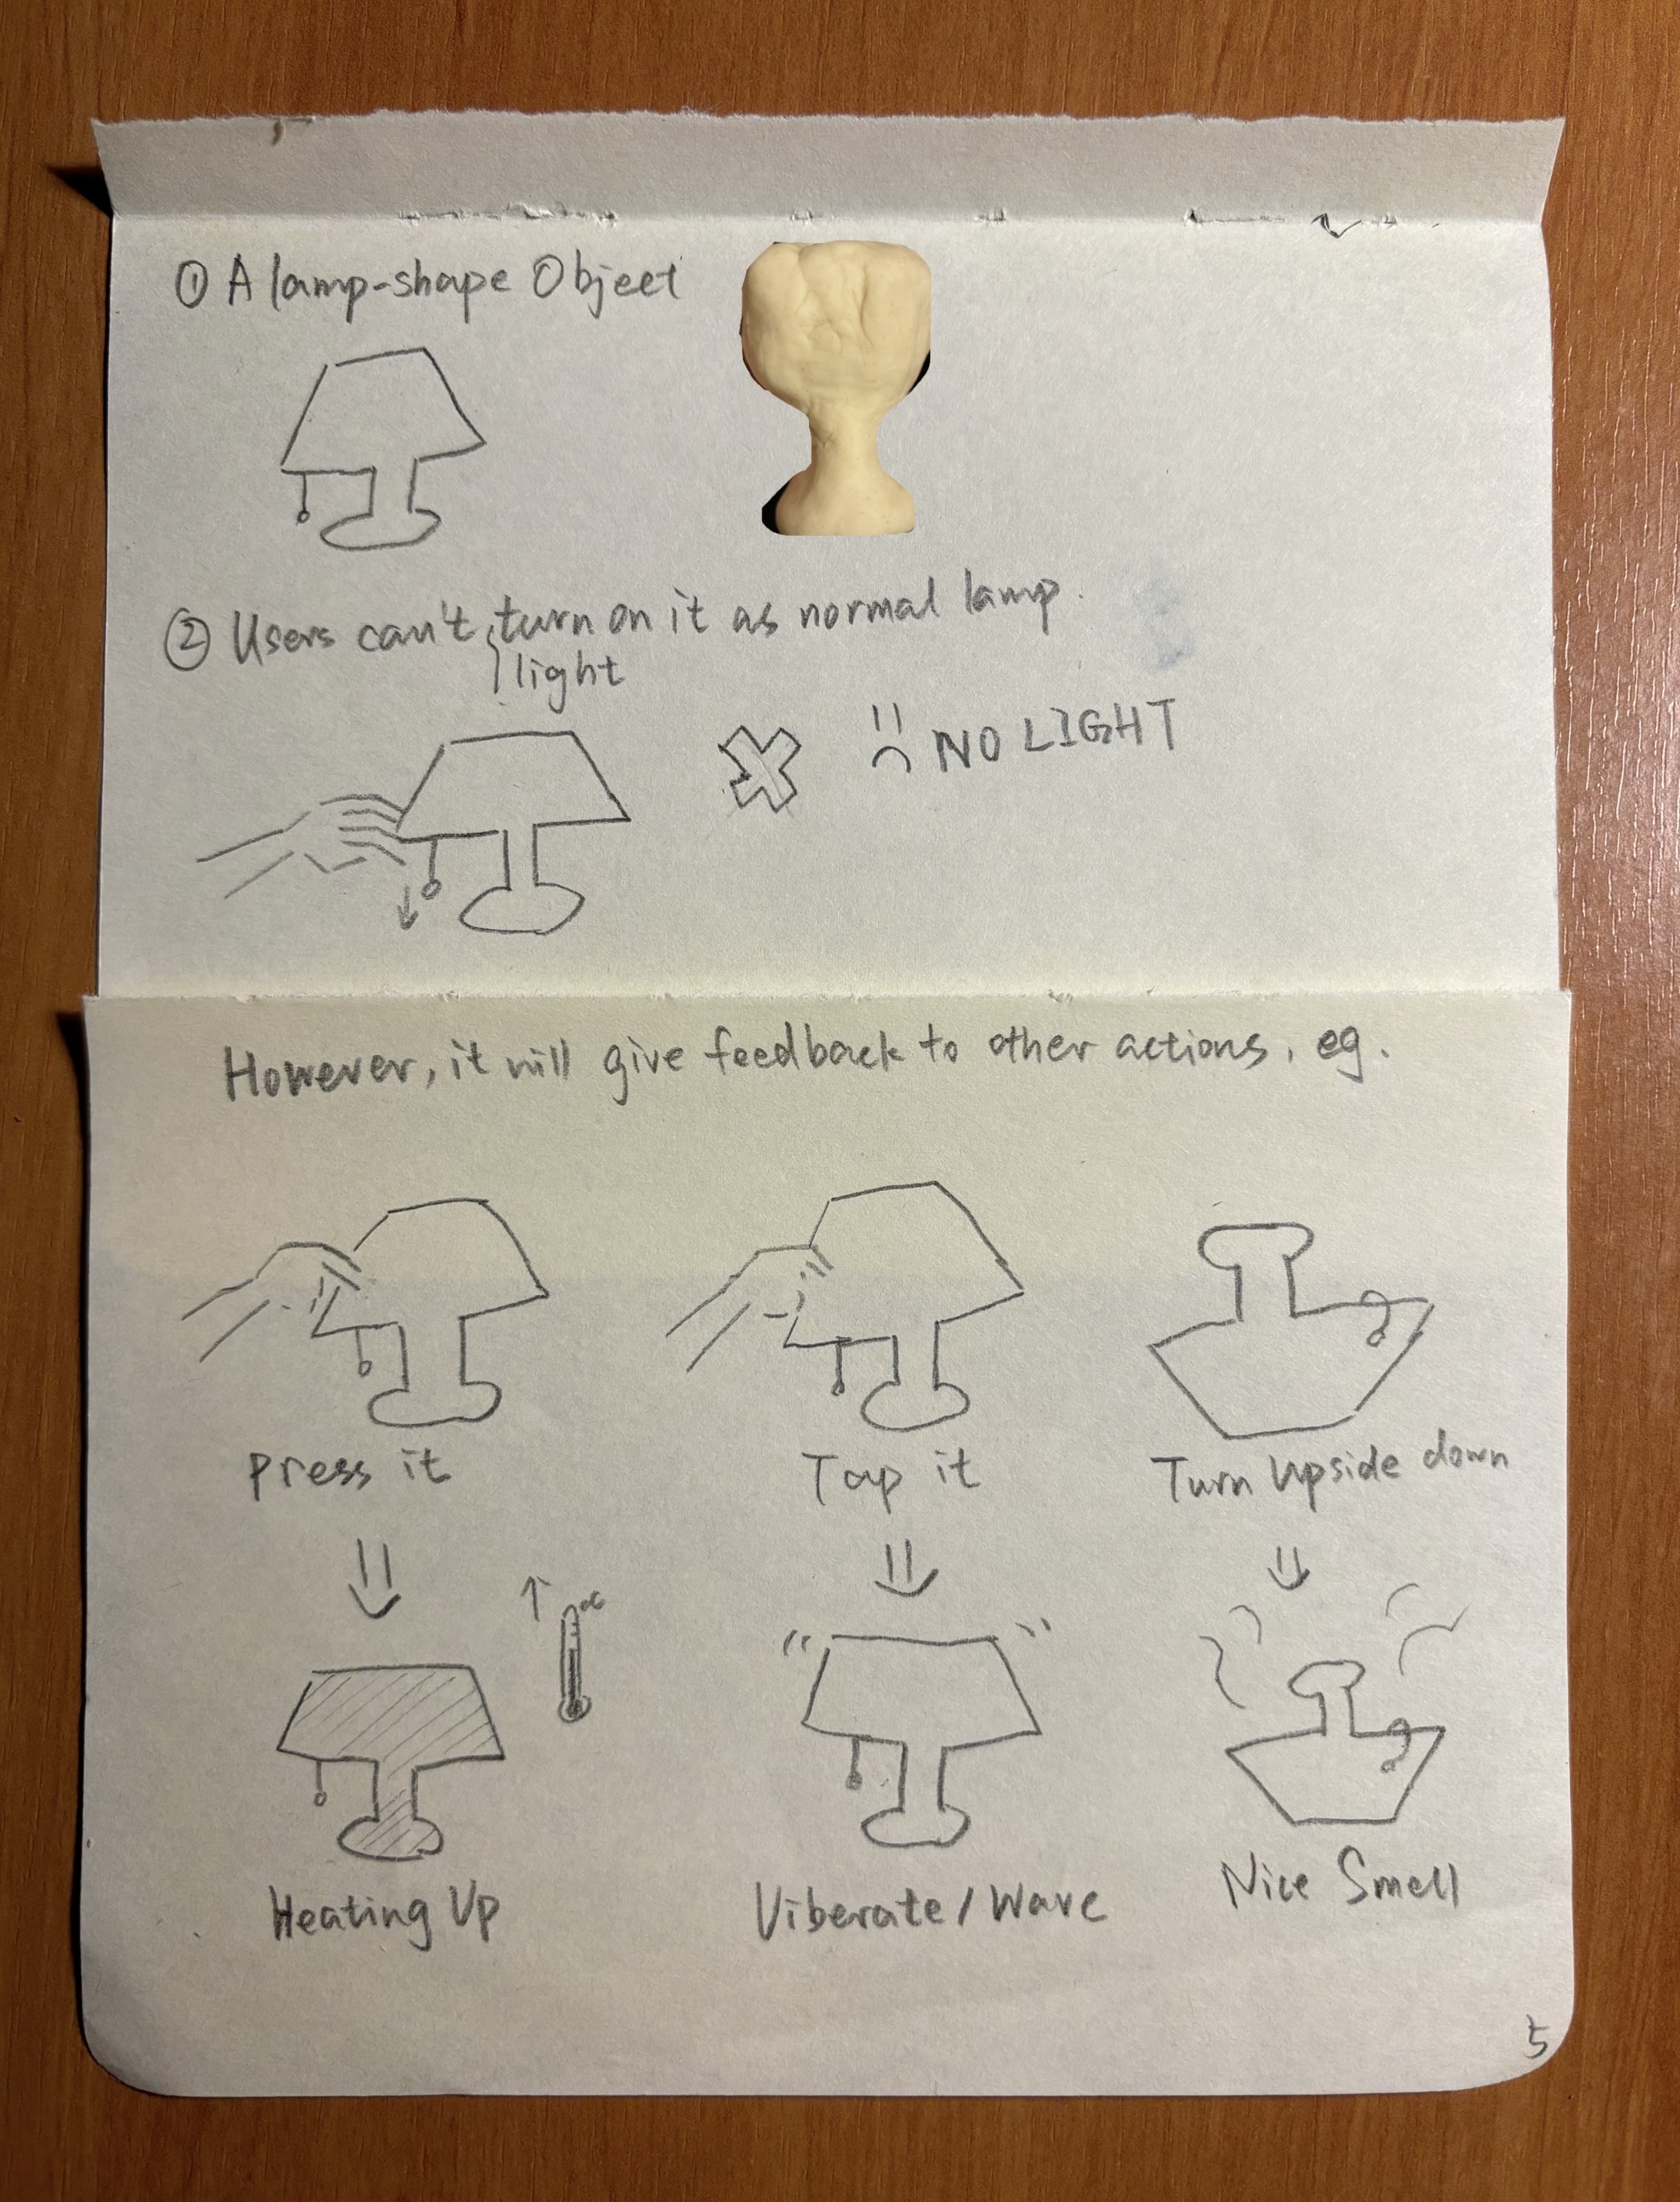 ① A lamp-shape Object
② Users can't turn on it as normal lamp.
light
NO LIGHT
However, it will give feedback to other actions, eg.
Press it
Tap it
Turn Upside down
°C
Heating Up
Viberate / Wave
Nice Smell
5